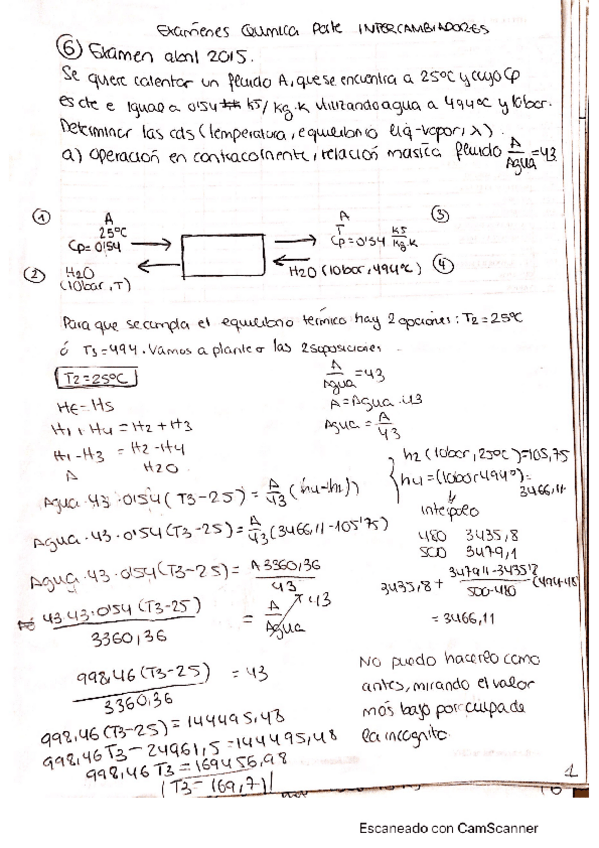 Exámenes Química Parte INTERCAMBIADORES
⑥ Examen abril 2015.
Se quiere calentar un fluido A, que se encuentra a 25ºC y cuyo Cp
es cte e igual a 0'54 KJ/Kg.K utilizando agua a 494ºC y 10bar.
Determinar las cds (temperatura, equilibrio liq-vapor, λ).
a) Operación en contracorriente, relación masica fluido A/Agua = 43
① A 25ºC Cp=0'54
A T Cp=0'54 KJ/Kg.K ③
② H2O (10bar, T)
H2O (10bar, 494ºC) ④
Para que se cumpla el equilibrio termico hay 2 opciones: T2=25ºC
ó T3=494. Vamos a plantear las 2 suposiciones
T2=25ºC
A/Agua = 43
A = Agua · 43
Agua = A/43
He = Hs
H1 + H4 = H2 + H3
H1 - H3 = H2 - H4
A H2O
h2 (10bar, 25ºC) = 105,75
h4 = (10bar 494º) = 3466,11
interpolo
480 3435,8
500 3479,1
3435,8 + 3479,1-3435,8/500-480 (494-48
= 3466,11
Agua · 43 · 0'54 (T3-25) = A/43 (h4-h2)
Agua · 43 · 0'54 (T3-25) = A/43 (3466,11-105'75)
Agua · 43 · 0'54 (T3-25) = A 3360,36/43
43·43·0'54 (T3-25)/3360,36 = A/Agua x 43
998,46 (T3-25)/3360,36 = 43
998,46 (T3-25) = 144495,48
998,46 T3 - 24961,5 = 144495,48
998,46 T3 = 169456,98
T3 = 169,7
No puedo hacerlo como
antes, mirando el valor
más bajo por culpa de
la incognito.
1
Escaneado con CamScanner